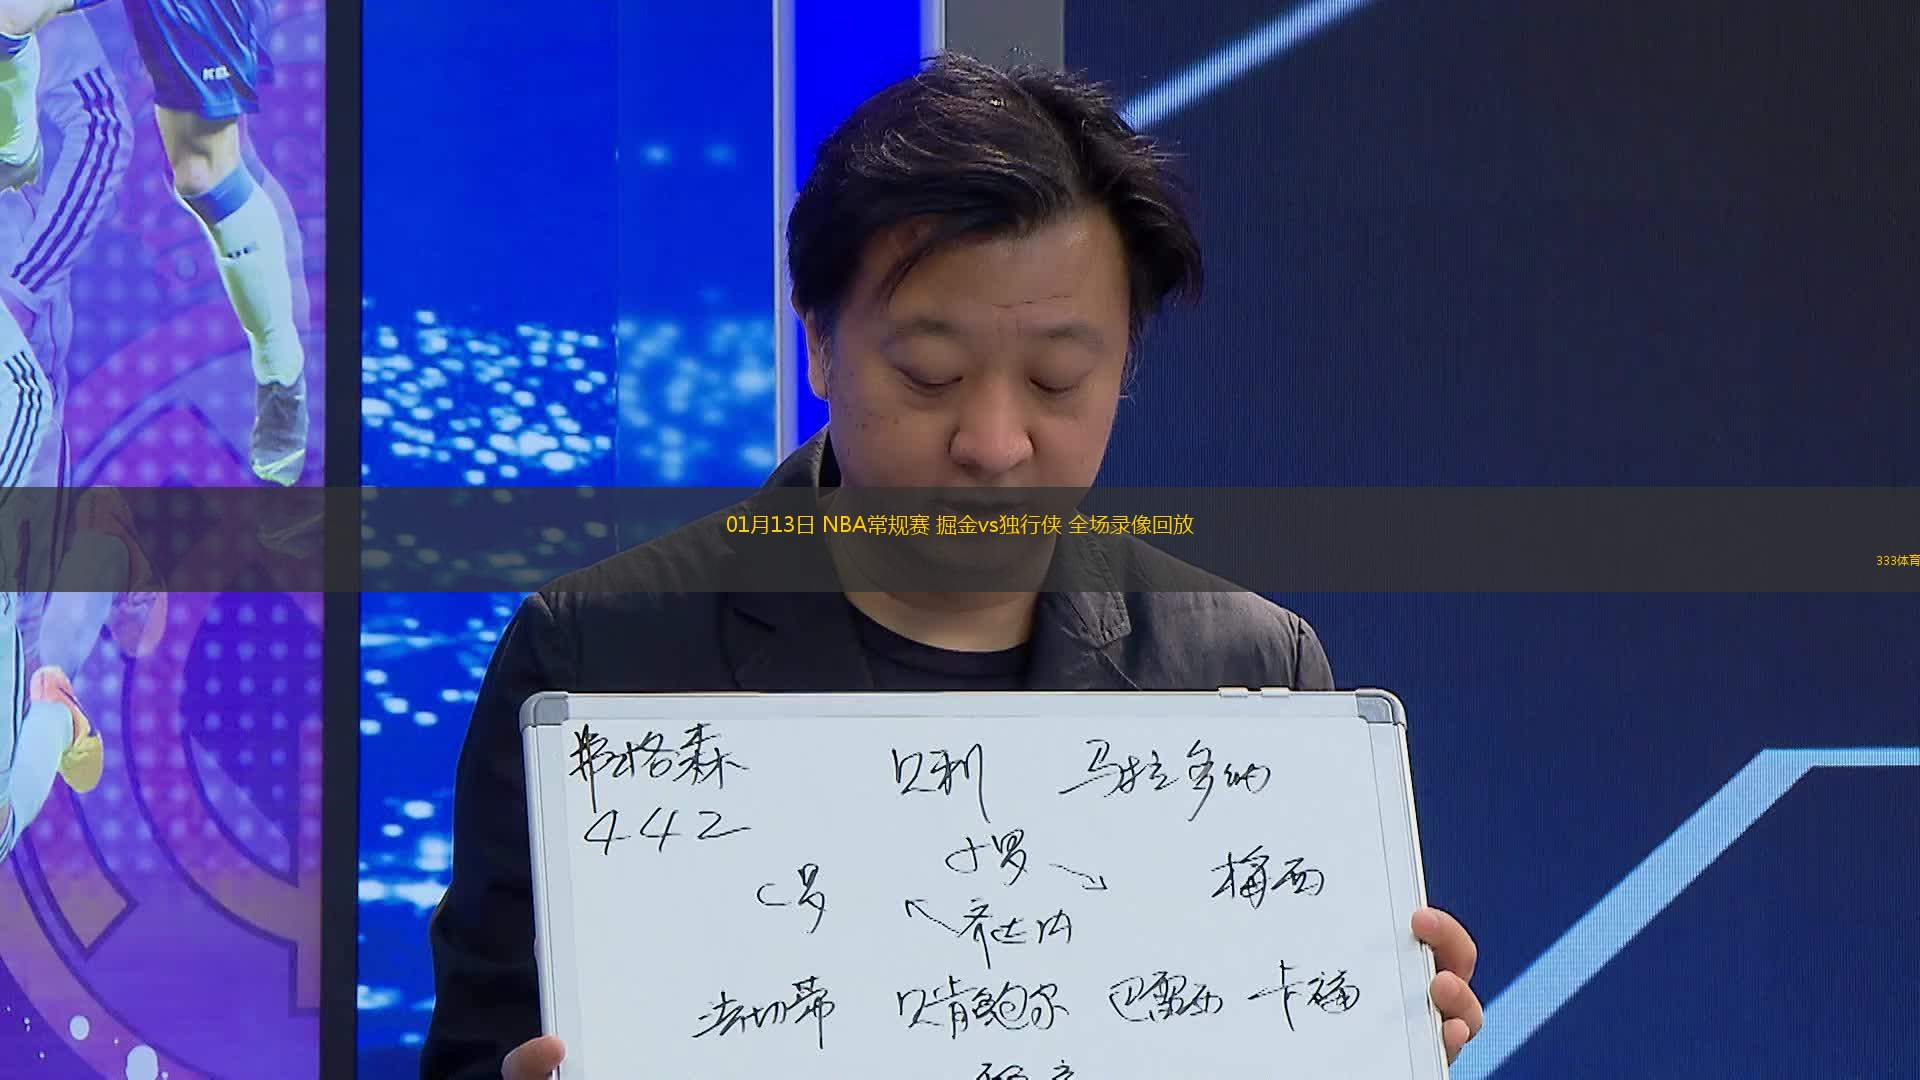 01月13日 NBA常规赛 掘金vs独行侠 全场录像回放
333体育
弗格森 贝利 马拉多纳
442
小罗
C罗 梅西
齐达内
法切蒂 贝肯鲍尔 巴雷西 卡福